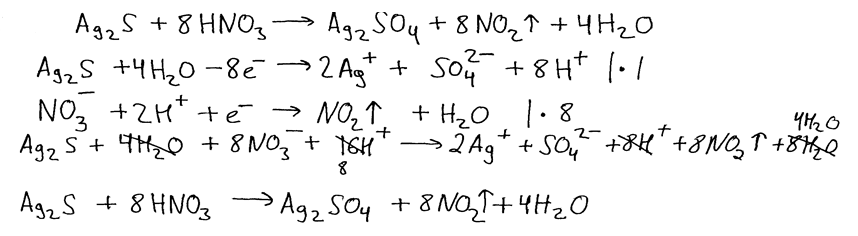 Ag₂S + 8HNO₃ → Ag₂SO₄ + 8NO₂↑ + 4H₂O
Ag₂S + 4H₂O − 8e⁻ → 2Ag⁺ + SO₄²⁻ + 8H⁺ | · 1
NO₃⁻ + 2H⁺ + e⁻ → NO₂↑ + H₂O | · 8
4H₂O
Ag₂S + 4H₂O + 8NO₃⁻ + 16H⁺ → 2Ag⁺ + SO₄²⁻ + 8H⁺ + 8NO₂↑ + 8H₂O
8
Ag₂S + 8HNO₃ → Ag₂SO₄ + 8NO₂↑ + 4H₂O